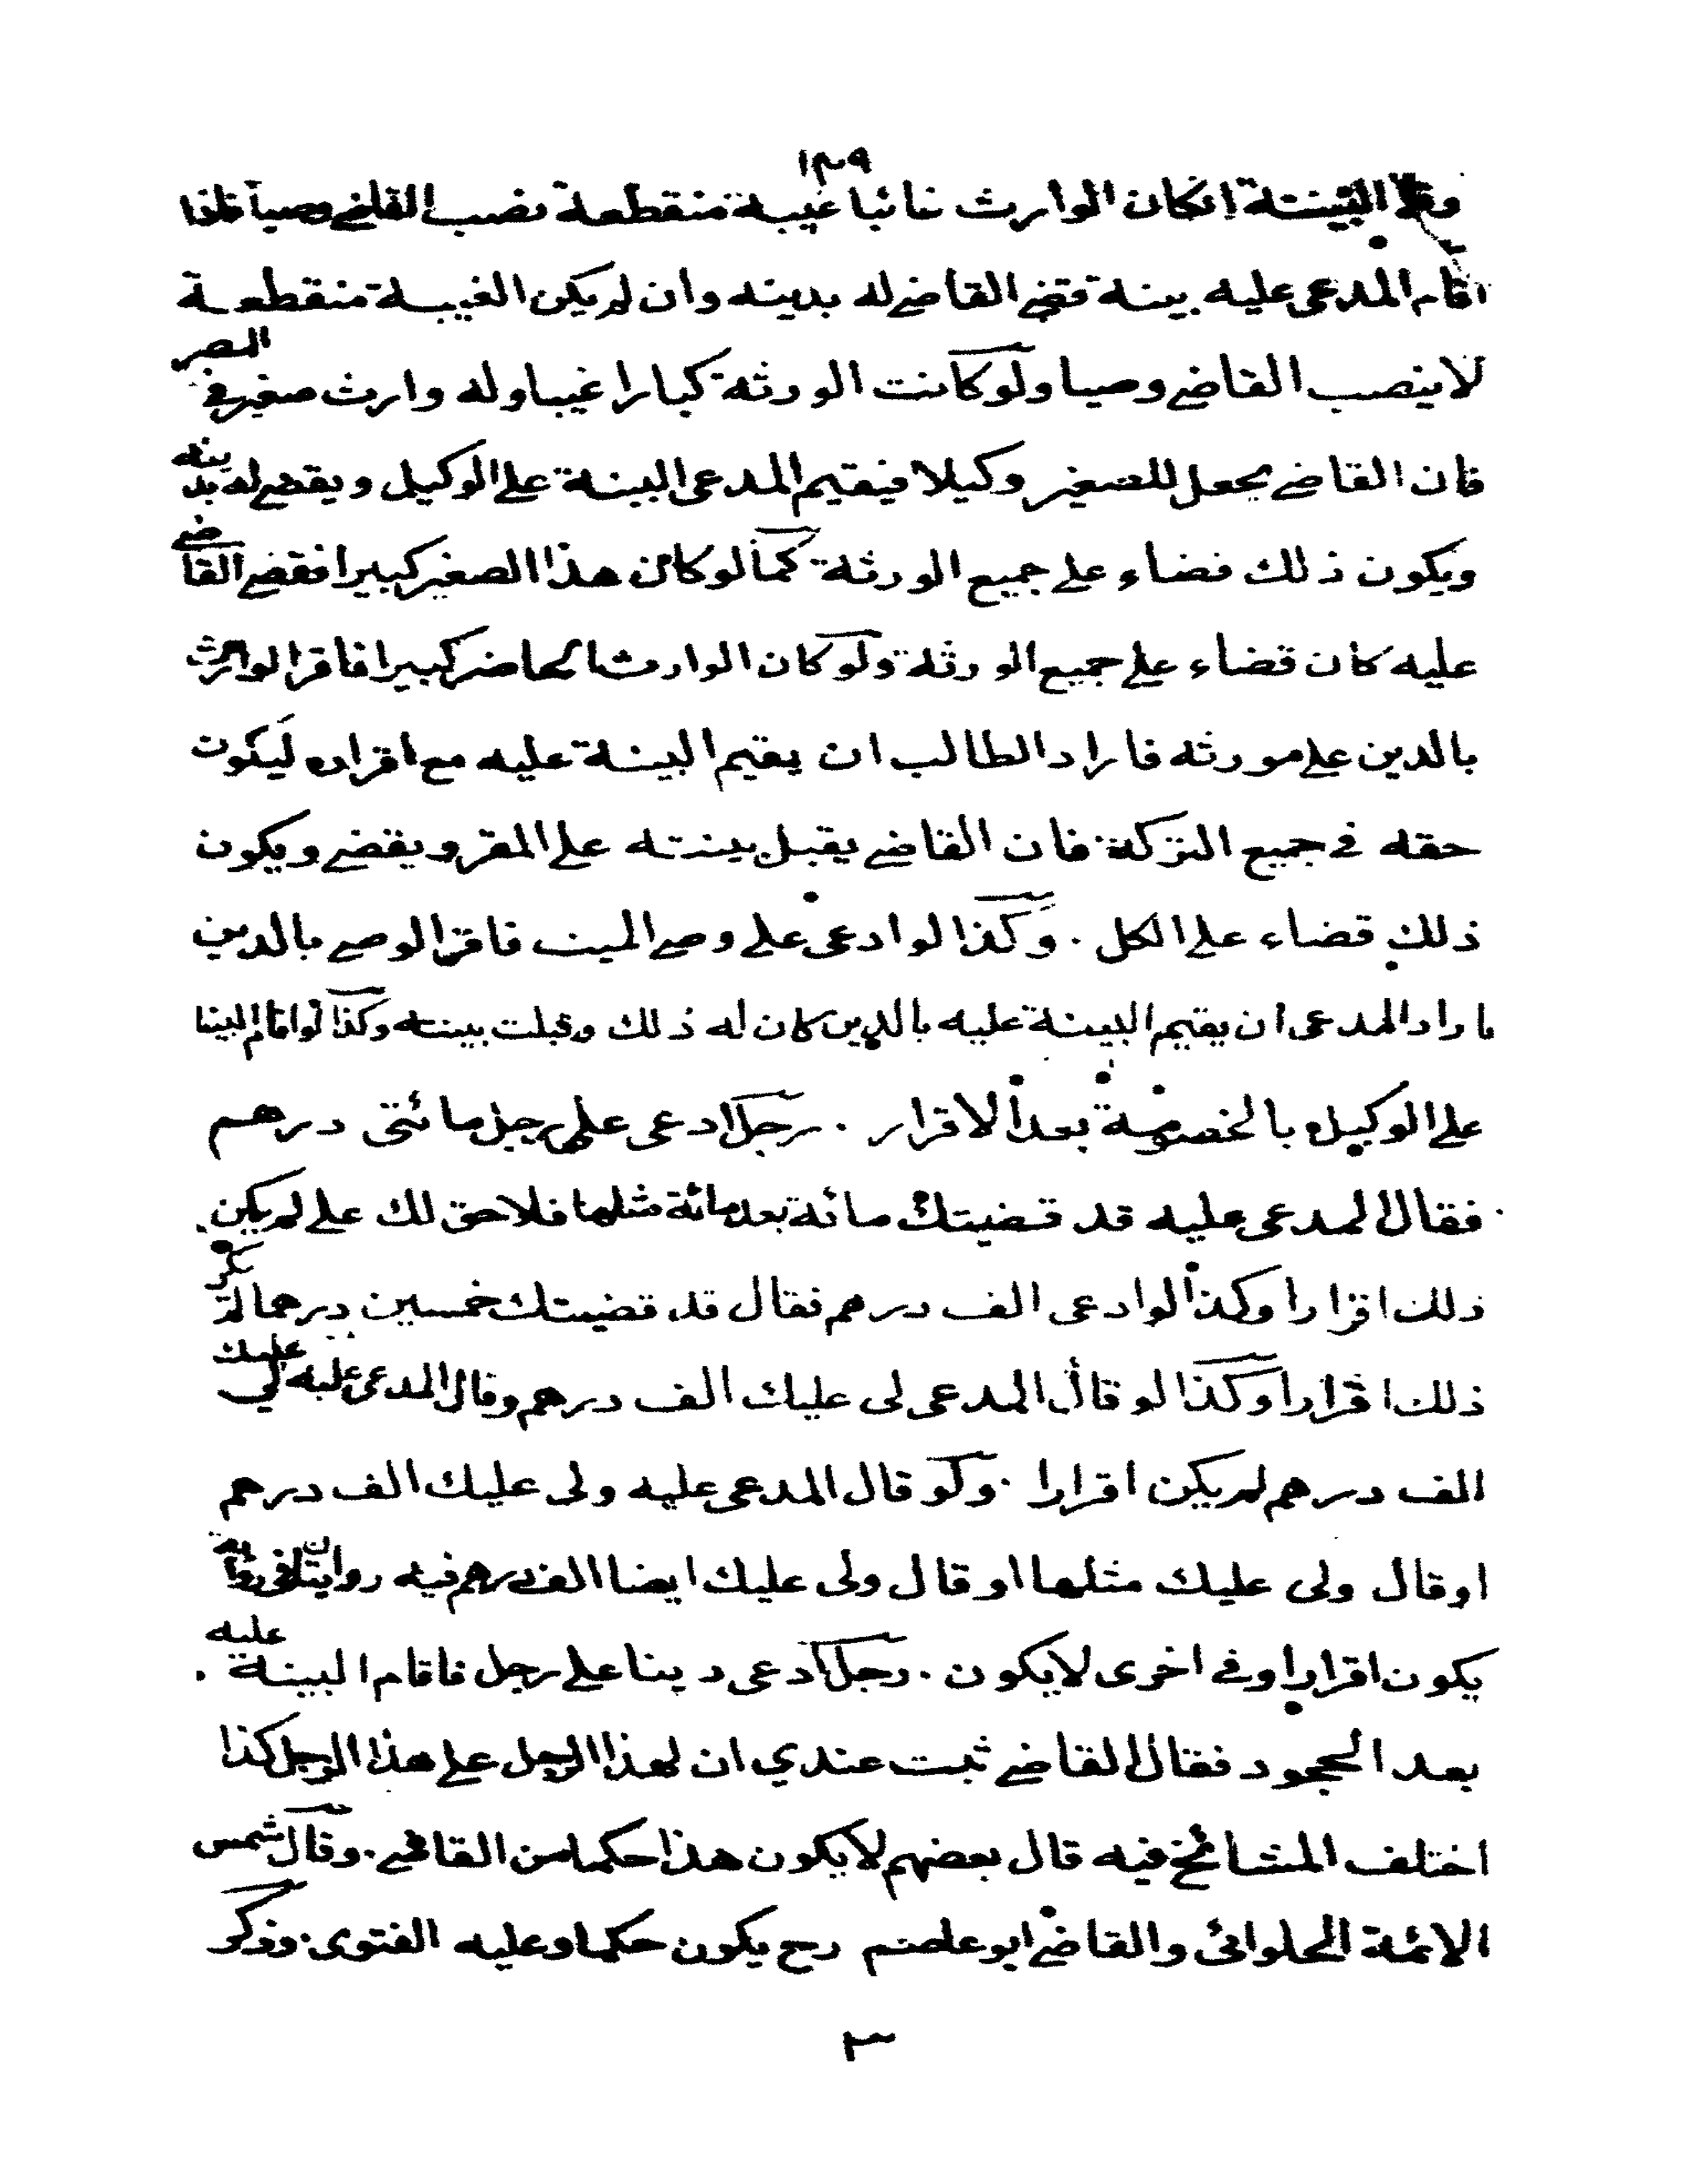 ١٣٩
البينة ان كان الوارث غائبا غيبة منقطعة نصب القاضي وصيا فاذا
اقام المدعى عليه بينة قضى القاضي له بدينه وان لم يكن الغيبة منقطعة
لا ينصب القاضي وصيا ولو كانت الورثة كبارا غيبا وله وارث صغير في المصر
فان القاضي يجعل للصغير وكيلا فيقيم المدعى البينة على الوكيل ويقضي له بدينه
ويكون ذلك قضاء على جميع الورثة كما لو كان هذا الصغير كبيرا فقضى القاضي
عليه كان قضاء على جميع الورثة ولو كان الوارث الحاضر كبيرا فاقر الوارث
بالدين على مورثه فاراد الطالب ان يقيم البينة عليه مع اقراره ليكون
حقه في جميع التركة فان القاضي يقبل بينته على المقر ويقضي ويكون
ذلك قضاء على الكل . وكذا لو ادعى على وصي الميت فاقر الوصي بالدين
فاراد المدعى ان يقيم البينة عليه بالدين كان له ذلك وقبلت بينته وكذا لو اقام البينا
على الوكيل بالخصومة بعد الاقرار . رجل ادعى على رجل مائتى درهم
فقال المدعى عليه قد قضيتك مائة بعد مائة مثلها فلا حق لك على لم يكن
ذلك اقرارا وكذا لو ادعى الف درهم فقال قد قضيتك خمسين درهما لم يكن
ذلك اقرارا وكذا لو قال المدعى لى عليك الف درهم وقال المدعى عليه لي عليك
الف درهم لم يكن اقرارا . ولو قال المدعى عليه ولى عليك الف درهم
او قال ولى عليك مثلها او قال ولى عليك ايضا الف درهم فيه روايتان في رواية
يكون اقرارا وفي اخرى لا يكون . رجل ادعى دينا على رجل فاقام البينة عليه
بعد الجحود فقال القاضي ثبت عندي ان لهذا الرجل على هذا الرجل كذا
اختلف المشائخ فيه قال بعضهم لا يكون هذا حكما من القاضي . وقال شمس
الائمة الحلوائى والقاضي ابو عاصم رح يكون حكما وعليه الفتوى . وذكر